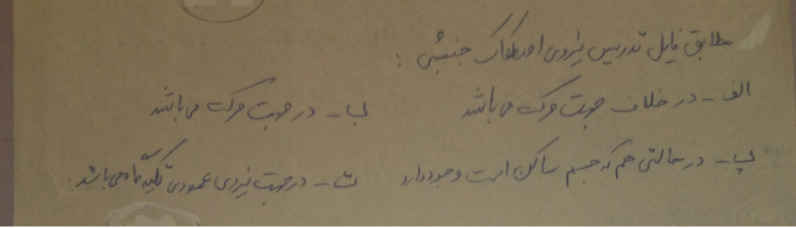 مطابق فایل تدریس نیروی اصطکاک جنبشی :
الف - در خلاف جهت حرکت می باشد ب - در جهت حرکت می باشد
پ - در حالتی هم که جسم ساکن است وجود دارد ت - در جهت نیروی عمودی تکیه گاه می باشد.